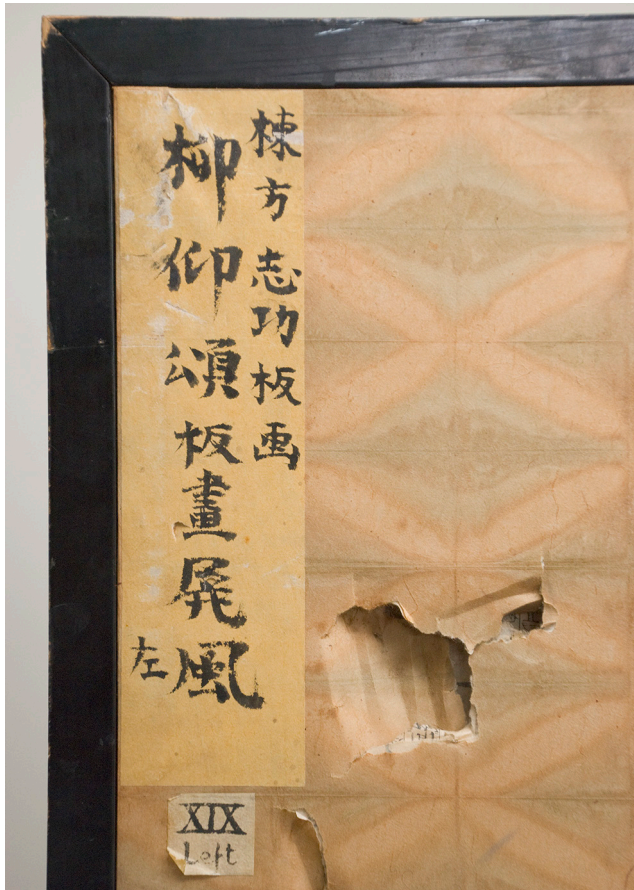 棟方志功板画
柳仰頌板畫屏風
左
XIX
Left